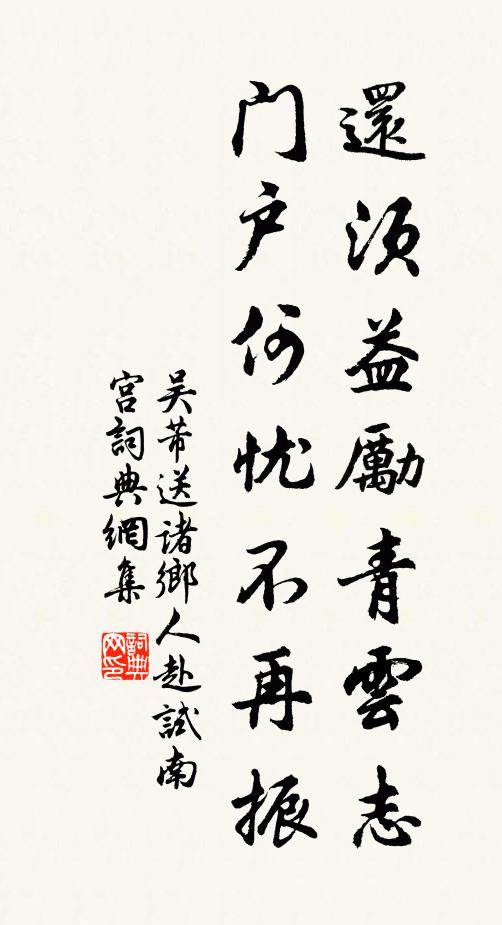 還須益勵青雲志
門户何忧不再振
吴芾送諸鄉人赴試南
宮詞典網集
詞典网印